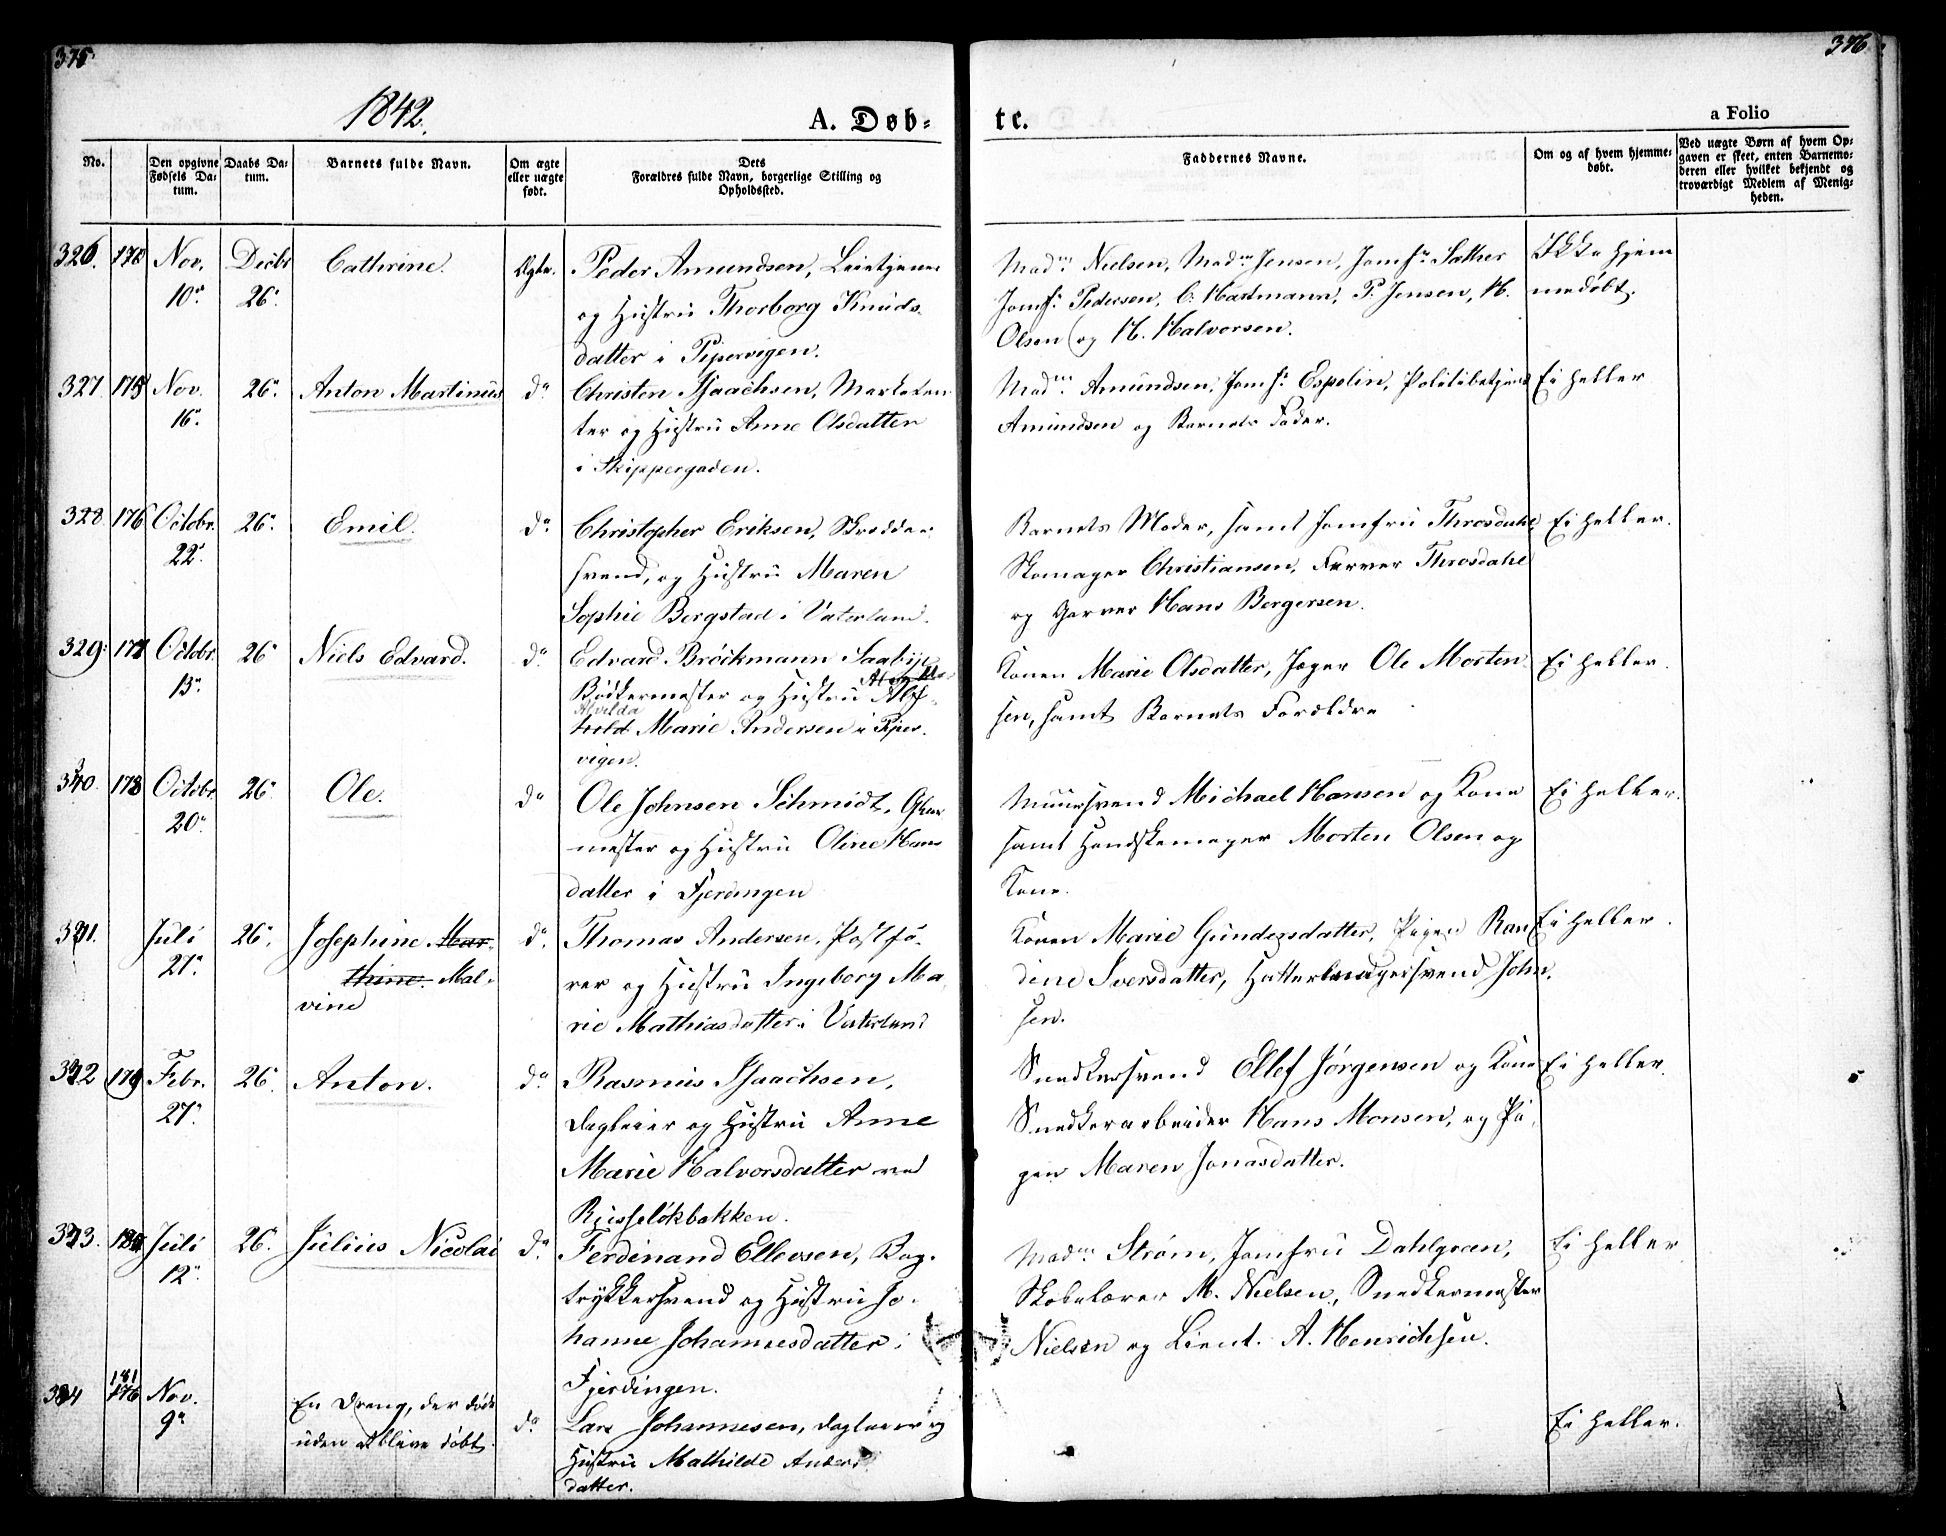 375
376
1842.
A. Døb-
te.
a Folio
No.
Den opgivne Fødsels Datum.
Daabs Datum.
Barnets fulde Navn.
Om ægte eller uægte født.
Dets Forældres fulde Navn, borgerlige Stilling og Opholdssted.
Faddernes Navne.
Om og af hvem hjemmedøbt.
Ved uægte Børn af hvem Opgaven er skeet, enten Barnemoderen eller hvilket bekjendt og troværdigt Medlem af Menigheden.
326.
Nov. 10de
Decbr 26.
Cathrine.
Ægte.
Peder Amundsen, Leietjener
og Hustru Thorborg Knuds-
datter i Pipervigen.
Madm. Nielsen, Madm Jensen, Jomfr Sæther
Jomfr. Pedersen, C. Hartmann, P. Jensen, H.
Olsen og H. Halvorsen.
Ikke hjem
medøbt.
327.
Nov. 16.
26.
Anton Martinus
do
Christen Isaachsen, Marketen
ter og Hustru Anne Olsdatter
i Skippergaden.
Madm. Amundsen, Jomfr. Espelin, Politibetjent
Amundsen og Barnets Fader.
Ei heller
328.
176
Octobr. 22.
26.
Emil.
do
Christopher Eriksen, Skrædder-
svend, og Hustru Maren
Sophie Bergstad i Vaterland.
Barnets Moder, samt Jomfru Throsdahl
Skomager Christiansen, Farver Throsdahl
og Garver Hans Bergersen.
Ei heller.
329.
Octobr. 13.
26
Niels Edvard.
do
Edvard Bröckmann Saabye
Bødkermester og Hustru Alf-
Alvilda
hild Marie Andersen i Piper-
vigen.
Konen Marie Olsdatter, Jæger Ole Morten
sen, samt Barnets Forældre
Ei heller.
340.
178
Octobr. 20.
26.
Ole.
do
Ole Johnsen Schmidt, Glar
mester og Hustru Oline Hans
datter i Fjerdingen
Muursvend Michael Hansen og Kone
samt Handskemager Morten Olsen og
Kone.
Ei heller.
Juli 27.
26.
Josephine Mar-
thine. Mal-
vine
do
Thomas Andersen, Postfø-
rer og Hustru Ingeborg Ma
rie Mathiasdatter i Vaterland
Konen Marie Gundersdatter, Pigen Ran
dine Iversdatter, Hattemagersvend John
sen.
Ei heller.
179
Febr. 27.
26.
Anton.
do
Rasmus Isaachsen,
Dagleier og Hustru Anne
Marie Halvorsdatter ved
Russeløkbakken.
Snedkersvend Ellef Jørgensen og Kone
Snedkerarbeider Hans Monsen, og Pi
gen Maren Jonasdatter.
Ei heller.
Juli 12.
26.
Julius Nicolai
do
Ferdinand Ellevsen, Bog-
trykkersvend og Hustru Jo-
hanne Johannesdatter i
Fjerdingen.
Madm Strøm, Jomfru Dahlgreen,
Skolelærer M. Nielsen, Snedkermester
Nielsen og Lieut. A. Henrichsen.
Ei heller
181
176
Nov. 9
En Dreng, der døde
uden at blive døbt.
do
Lars Johannesen, Dagleier og
Hustru Mathilde Anders
datter.
Ei heller.